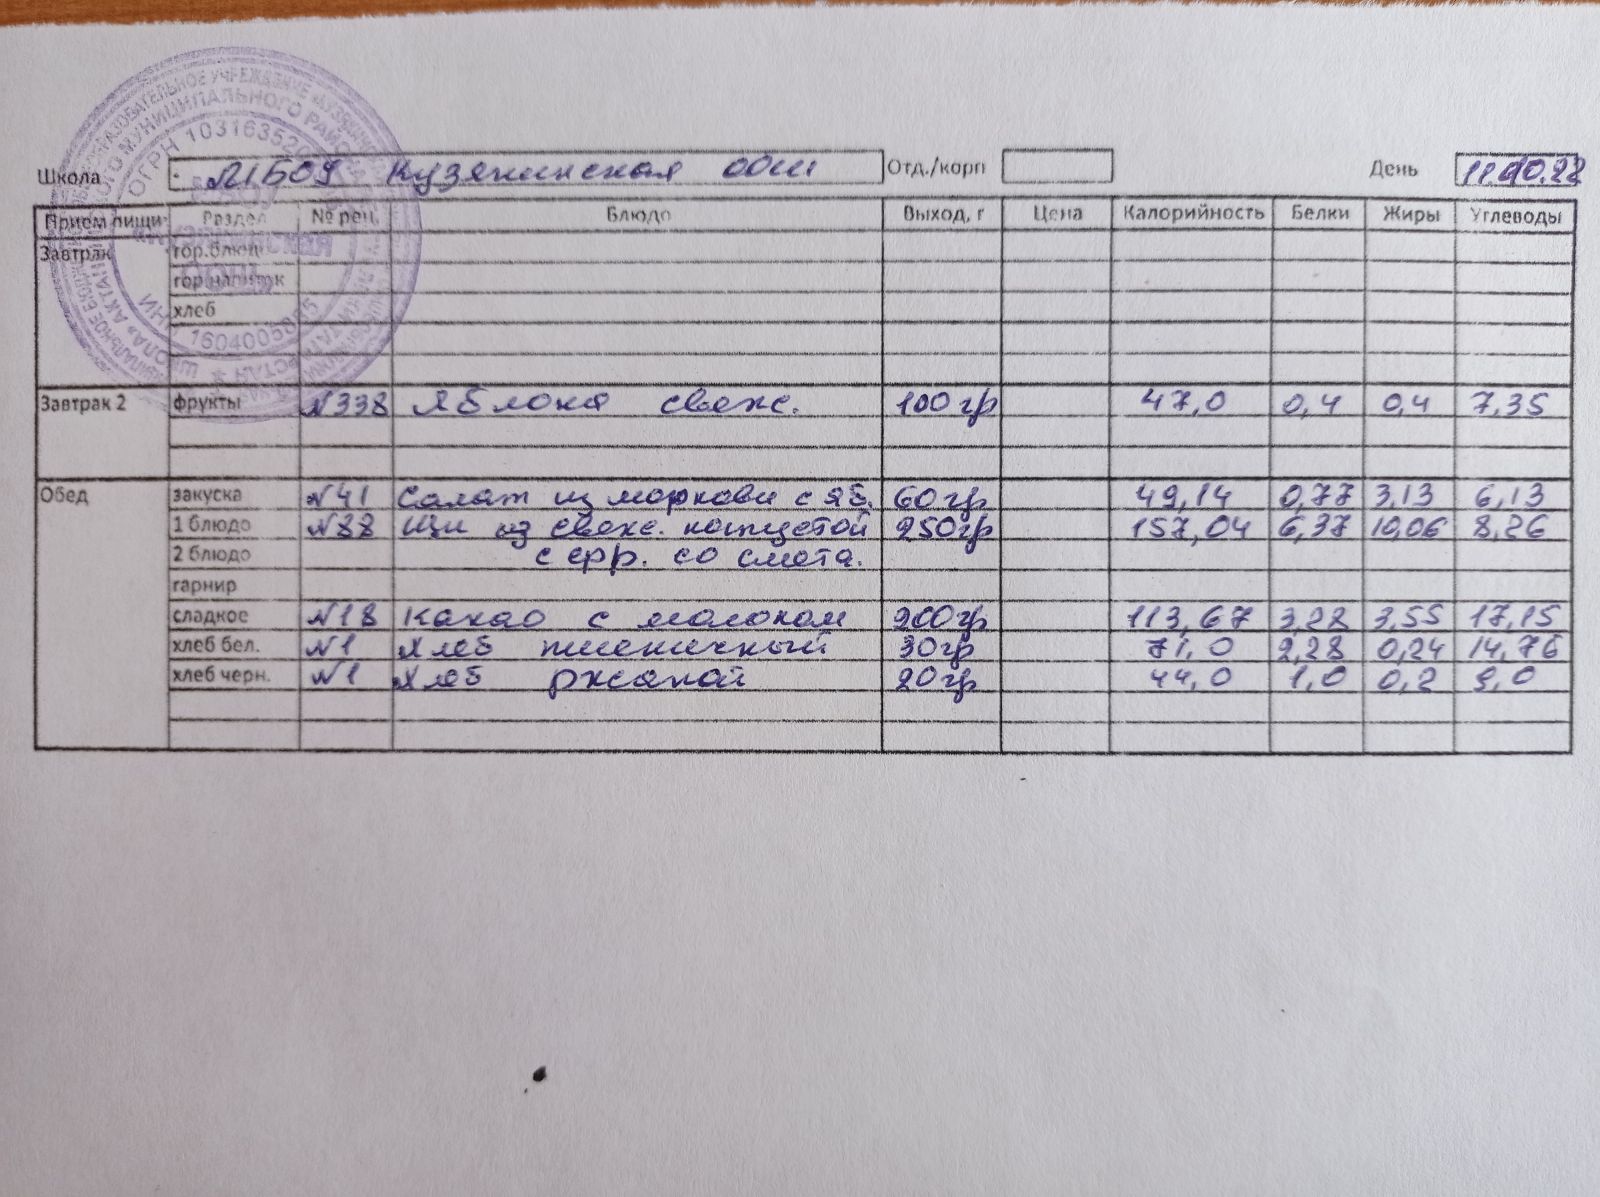 Школа МБОУ Кузякинская ООШ Отд./корп День 11.10.22
Прием пищи Раздел № рец. Блюдо Выход, г Цена Калорийность Белки Жиры Углеводы
Завтрак гор.блюдо
гор.напиток
хлеб
Завтрак 2 фрукты №338 Яблоко свеж. 100 гр 47,0 0,4 0,4 7,35
Обед закуска №41 Салат из моркови с яб. 60 гр 49,14 0,77 3,13 6,13
1 блюдо №88 Щи из свеж. капустой 250 гр 157,04 6,37 10,06 8,26
2 блюдо с фр. со смета.
гарнир
сладкое №18 Какао с молоком 200 гр 113,67 3,28 3,55 17,15
хлеб бел. №1 Хлеб пшеничный 30 гр 71,0 2,28 0,24 14,76
хлеб черн. №1 Хлеб ржаной 20 гр 44,0 1,0 0,2 9,0